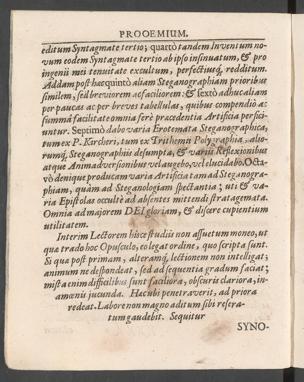 PROOEMIUM.
editum Syntagmate tertio; quartò tandem Inventum no-
vum eodem Syntagmate tertio ab ipso insinuatum, & pro
ingenii mei tenuitate excultum, perfectiusq́; redditum.
Addam post hæc quintò aliam Steganographiam prioribus
similem, sed breviorem ac faciliorem: & sextò adhuc aliam
per paucas ac per breves tabellulas, quibus compendiò ac
summâ facilitate omnia ferè præcedentia Artificia perfici-
untur. Septimò dabo varia Erotemata Steganographica,
tum ex P. Kircheri, tum ex Trithemii Polygraphia, alio-
rumq́; Steganographiis desumpta, & variis Reflexionibus
atque Animadversionibus vel augebo, vel elucidabo. Octa-
vò denique producam varia Artificia tam ad Stegano gra-
phiam, quàm ad Steganologiam spectantia; uti & va-
ria Epistolas occultè ad absentes mittendi stratagemata.
Omnia ad majorem DEI gloriam, & discere cupientium
utilitatem.
Interim Lectorem hisce studiis non assuetum moneo, ut
qua trado hoc Opusculo, eo legat ordine, quo scripta sunt.
Si qua post primam, alteramq́; lectionem non intelligat;
animum ne despondeat, sed ad sequentia gradum faciat;
mista enim difficilibus sunt faciliora, obscuris clariora, in-
amœnis jucunda. Hac ubi penetraverit, ad priora
redeat. Labore non magno aditum sibi resera-
tum gaudebit. Sequitur
SYNO-